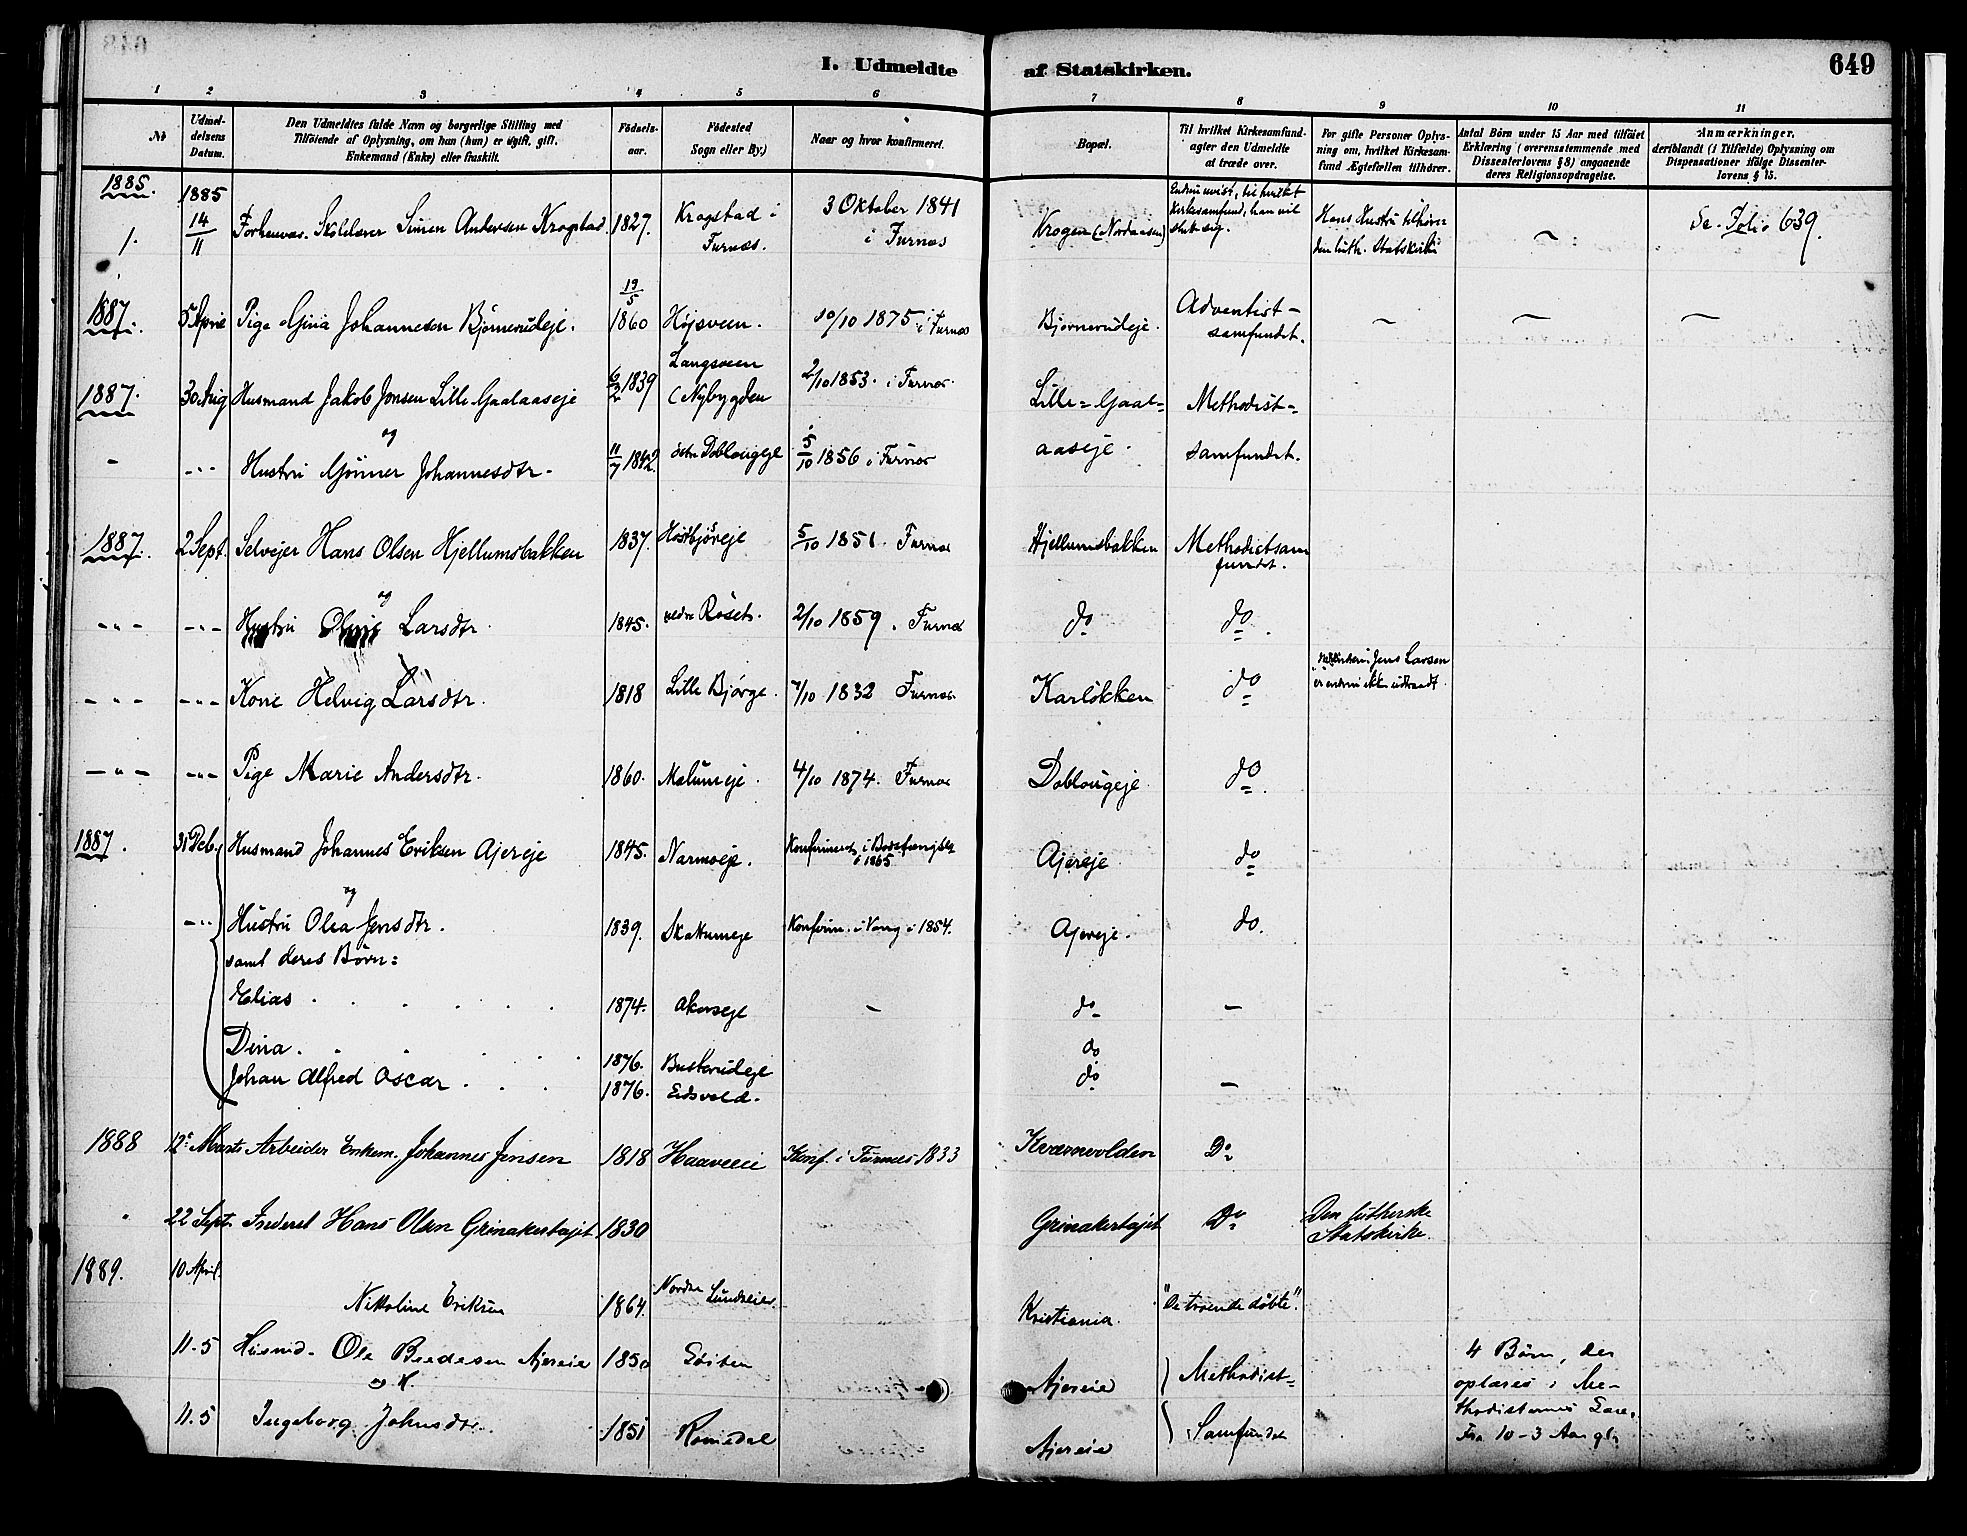 649
I. Udmeldte af Statskirken.
1 2 3 4 5 6 7 8 9 10 11
No
Udmel-
delsens
Datum.
Den Udmeldtes fulde Navn og borgerlige Stilling med
Tilföiende af Oplysning, om han (hun) er ugift, gift,
Enkemand (Enke) eller fraskilt.
Födsels-
aar.
Födested
Sogn eller By.)
Naar og hvor konfirmeret.
Bopæl.
Til hvilket Kirkesamfund-
agter den Udmeldte
at træde over.
For gifte Personer Oplys-
ning om, hvilket Kirkesam-
fund Ægtefællen tilhörer.
Antal Börn under 15 Aar med tilföiet
Erklæring (overensstemmende med
Dissenterlovens § 8) angaaende
deres Religionsopdragelse.
Anmærkninger,
deriblandt (i Tilfælde) Oplysning om
Dispensationer ifölge Dissenter-
lovens § 15.
1885.
1. 1885 14/11 Forhenvær. Skolelærer Simen Andersen Krogstad. 1827. Krogstad i Furnæs. 3 Oktober 1841 i Furnæs Krogen (Nordaasen) Endnu uvist, til hvilket Kirkesamfund, han vil slutte sig. Hans Hustru tilhører den luth. Statskirke ~ Se Folio 639.
1887. 5 April Pige Gina Johannesen Bjørnerudeje. 19/5 1860 Højsveen. 10/10 1875 i Furnæs Bjørnerudeje. Adventist-samfundet. ~ ~ ~
1887. 30 Aug Husmand Jakob Jonsen Lille Gaalaaseje 6/2 1839 Langsveen (Nybygden 2/10 1853. i Furnæs. Lille-Gaal- Methodist-
og
- -"- Hustru Gjönner Johannesdtr. 11/7 1842 østre Doblougeje 5/10 1856 i Furnæs aaseje. samfundet.
1887. 2 Sept. Selvejer Hans Olsen Hjellumsbakken 1837. Hostbjöreje 5/10 1851. Furnæs Hjellumsbakken Methodistsam fundet.
og
-"- -"- Hustru Oline Larsdtr. 1845. nedre Röset. 2/10 1859. Furnæs do do.
-"- -"- Kone Helvig Larsdtr. 1818 Lille Bjørge. 7/10 1832 Furnæs Karlökken do Jens Larsen er endnu ikke udtraadt.
-"- -"- Pige Marie Andersdtr. 1860. Malumeje. 4/10 1874. Furnæs Doblougeje do.
1887. 31 Deb. Husmand Johannes Eriksen Ajereje 1845. Narmoeje. Konfirmered i Bodsfængslet i 1865 Ajereje do
og
-"- Hustru Olea Jensdtr. 1839. Skattumeje Konfirm. i Vang i 1854. Ajereje. do.
samt deres Børn:
Elias . . . . . 1874. Akerseje - do -
Dina. . . . . 1876. Busterudeje do
Johan Alfred Oscar . . . 1876. Eidsvold. do -
1888 12te Marts Arbeider Enkem. Johannes Jensen 1818 Haaveeie Konf. i Furnæs 1833 Kværnvolden Do
" 22 Sept. Inderst Hans Olsen Grinakerhøjet 1830 Grinakerhøjet Do Den lutherske Statskirke.
1889. 10 April. Nikoline Eriksen 1864 Nordre Lundseie. Kristiania. "De troende døbte".
11.5 Husmd. Ole Beedesen Ajereie 1850 Ajereie Methodist- 4 Børn, der
og H. oplæres i Me-
11.5 Ingeborg Johnsdtr. 1851 Romedal Ajereie Samfundet thodisternes Lære.
Fra 10-3 Aar gl.